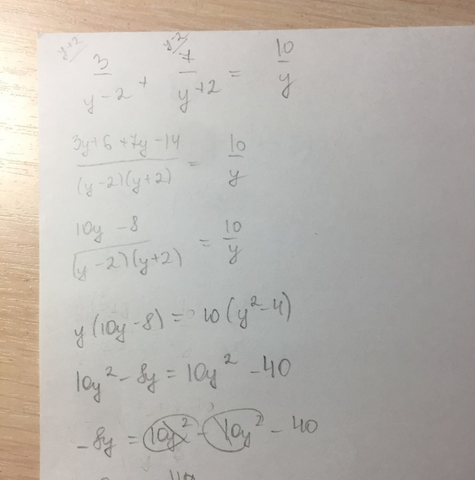 y+2 y-2
3/(y-2) + 7/(y+2) = 10/y
(3y+6+7y-14)/((y-2)(y+2)) = 10/y
(10y-8)/((y-2)(y+2)) = 10/y
y(10y-8) = 10(y²-4)
10y²-8y = 10y²-40
-8y = 10y²-10y²-40